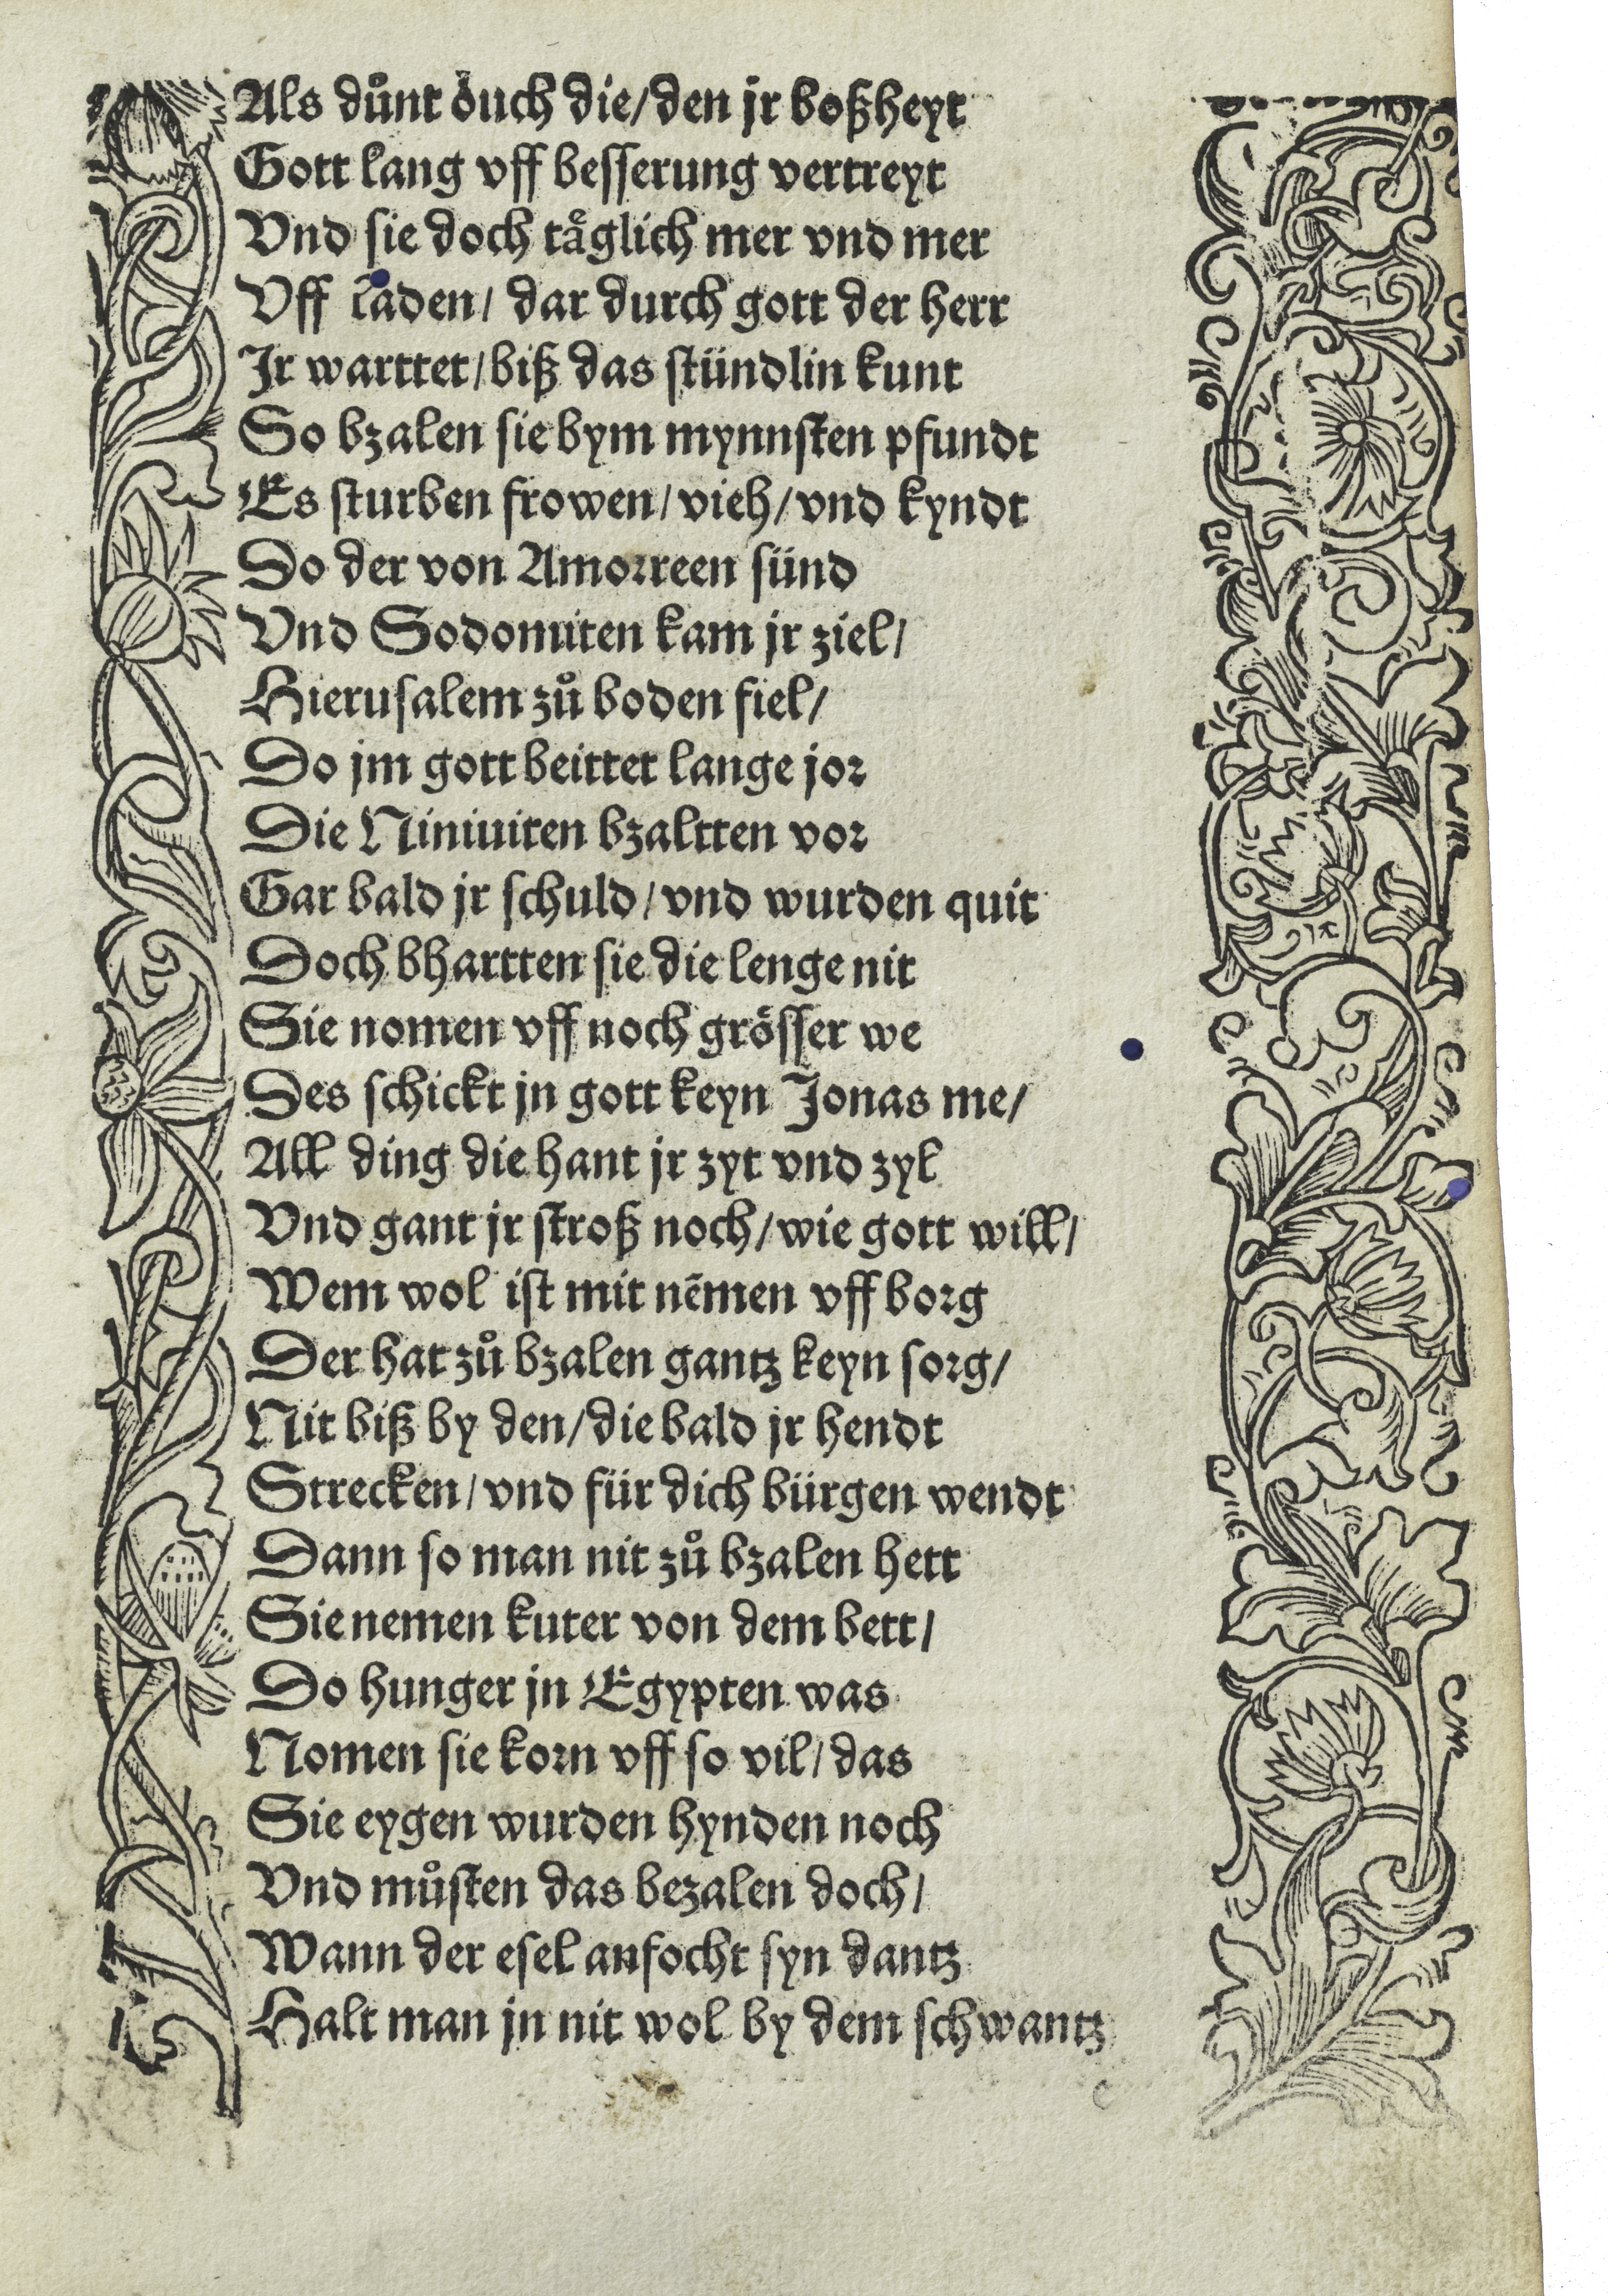 Als důnt öuch die/den jr boßheyt
Gott lang vff besserung vertreyt
Vnd sie doch tåglich mer vnd mer
Vff laden/ dar durch gott der herr
Jr warttet/biß das stündlin kunt
So bzalen sie bym mynnsten pfundt
Es sturben frowen/vieh/vnd kyndt
Do der von Amorreen sünd
Vnd Sodomiten kam jr ziel/
Hierusalem zů boden fiel/
Do jm gott beittet lange jor
Die Niniuiten bzaltten vor
Gar bald jr schuld/vnd wurden quit
Doch bhartten sie die lenge nit
Sie nomen vff noch grösser we
Des schickt jn gott keyn Jonas me/
All ding die hant jr zyt vnd zyl
Vnd gant jr stroß noch/wie gott will/
Wem wol ist mit nēmen vff borg
Der hat zů bzalen gantz keyn sorg/
Nit biß by den/die bald jr hendt
Strecken/vnd für dich bürgen wendt
Dann so man nit zů bzalen hett
Sie nemen kuter von dem bett/
Do hunger jn Egypten was
Nomen sie korn vff so vil/das
Sie eygen wurden hynden noch
Vnd můsten das bezalen doch/
Wann der esel anfocht syn dantz
Halt man jn nit wol by dem schwantz
c